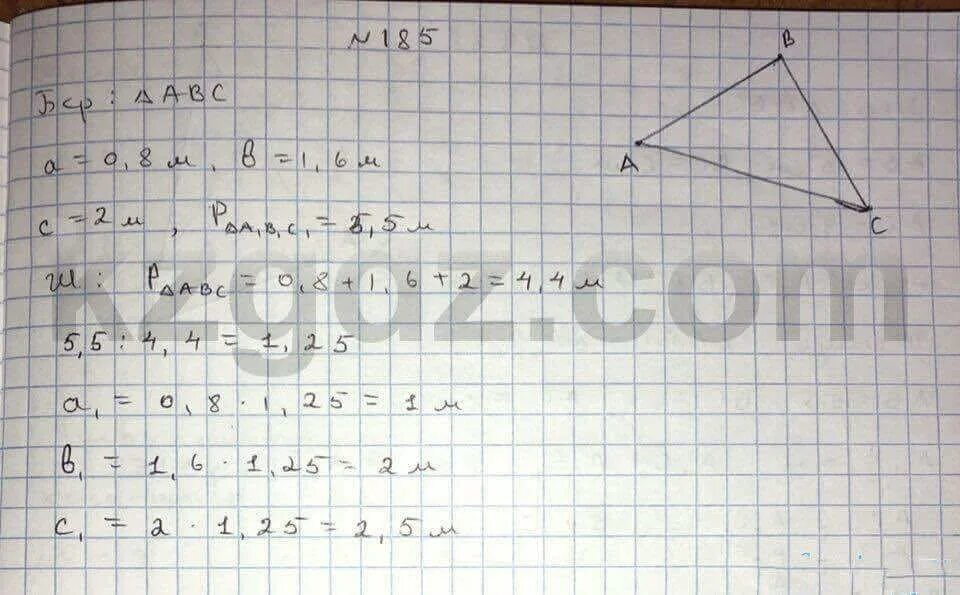 №185
Бер: ΔABC
a = 0,8 м, в = 1,6 м
c = 2 м, PΔA₁B₁C₁ = 5,5 м
Ш: PΔABC = 0,8 + 1,6 + 2 = 4,4 м
5,5 : 4,4 = 1,25
a₁ = 0,8 · 1,25 = 1 м
в₁ = 1,6 · 1,25 = 2 м
c₁ = 2 · 1,25 = 2,5 м
B
A
C
kzgdz.com